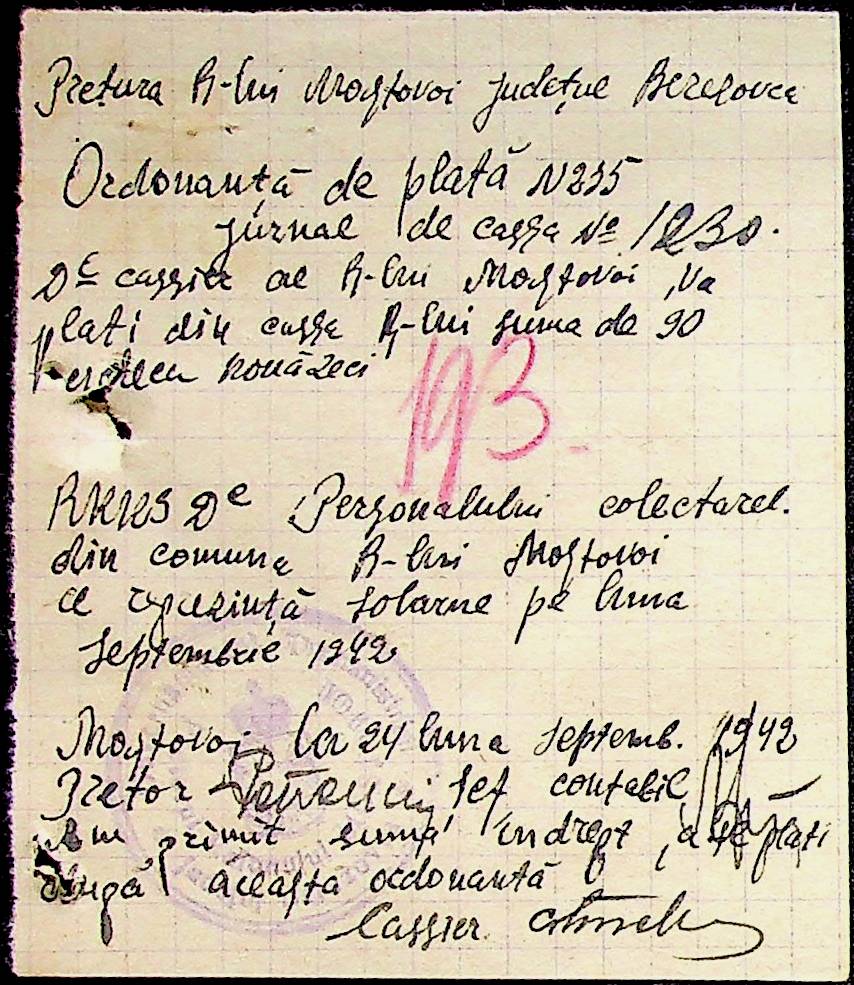 Pretura R-lui Mostovoi județue Beresovca
Ordonanță de plată N 235
jurnal de cassa № 1230.
De cassier al R-lui Mostovoi, va
plati din cassa R-lui suma de 90
nouăzeci
193
RKKS De Personalului colectarel.
din comuna R-lui Mostovoi
ce reprezintă solarne pe luna
septembrie 1942
Mostovoi la 24 luna septemb. 1942
Pretor șef contabil
Am primit suma indrept, a se plăti
după aceasta ordonantă
Cassier